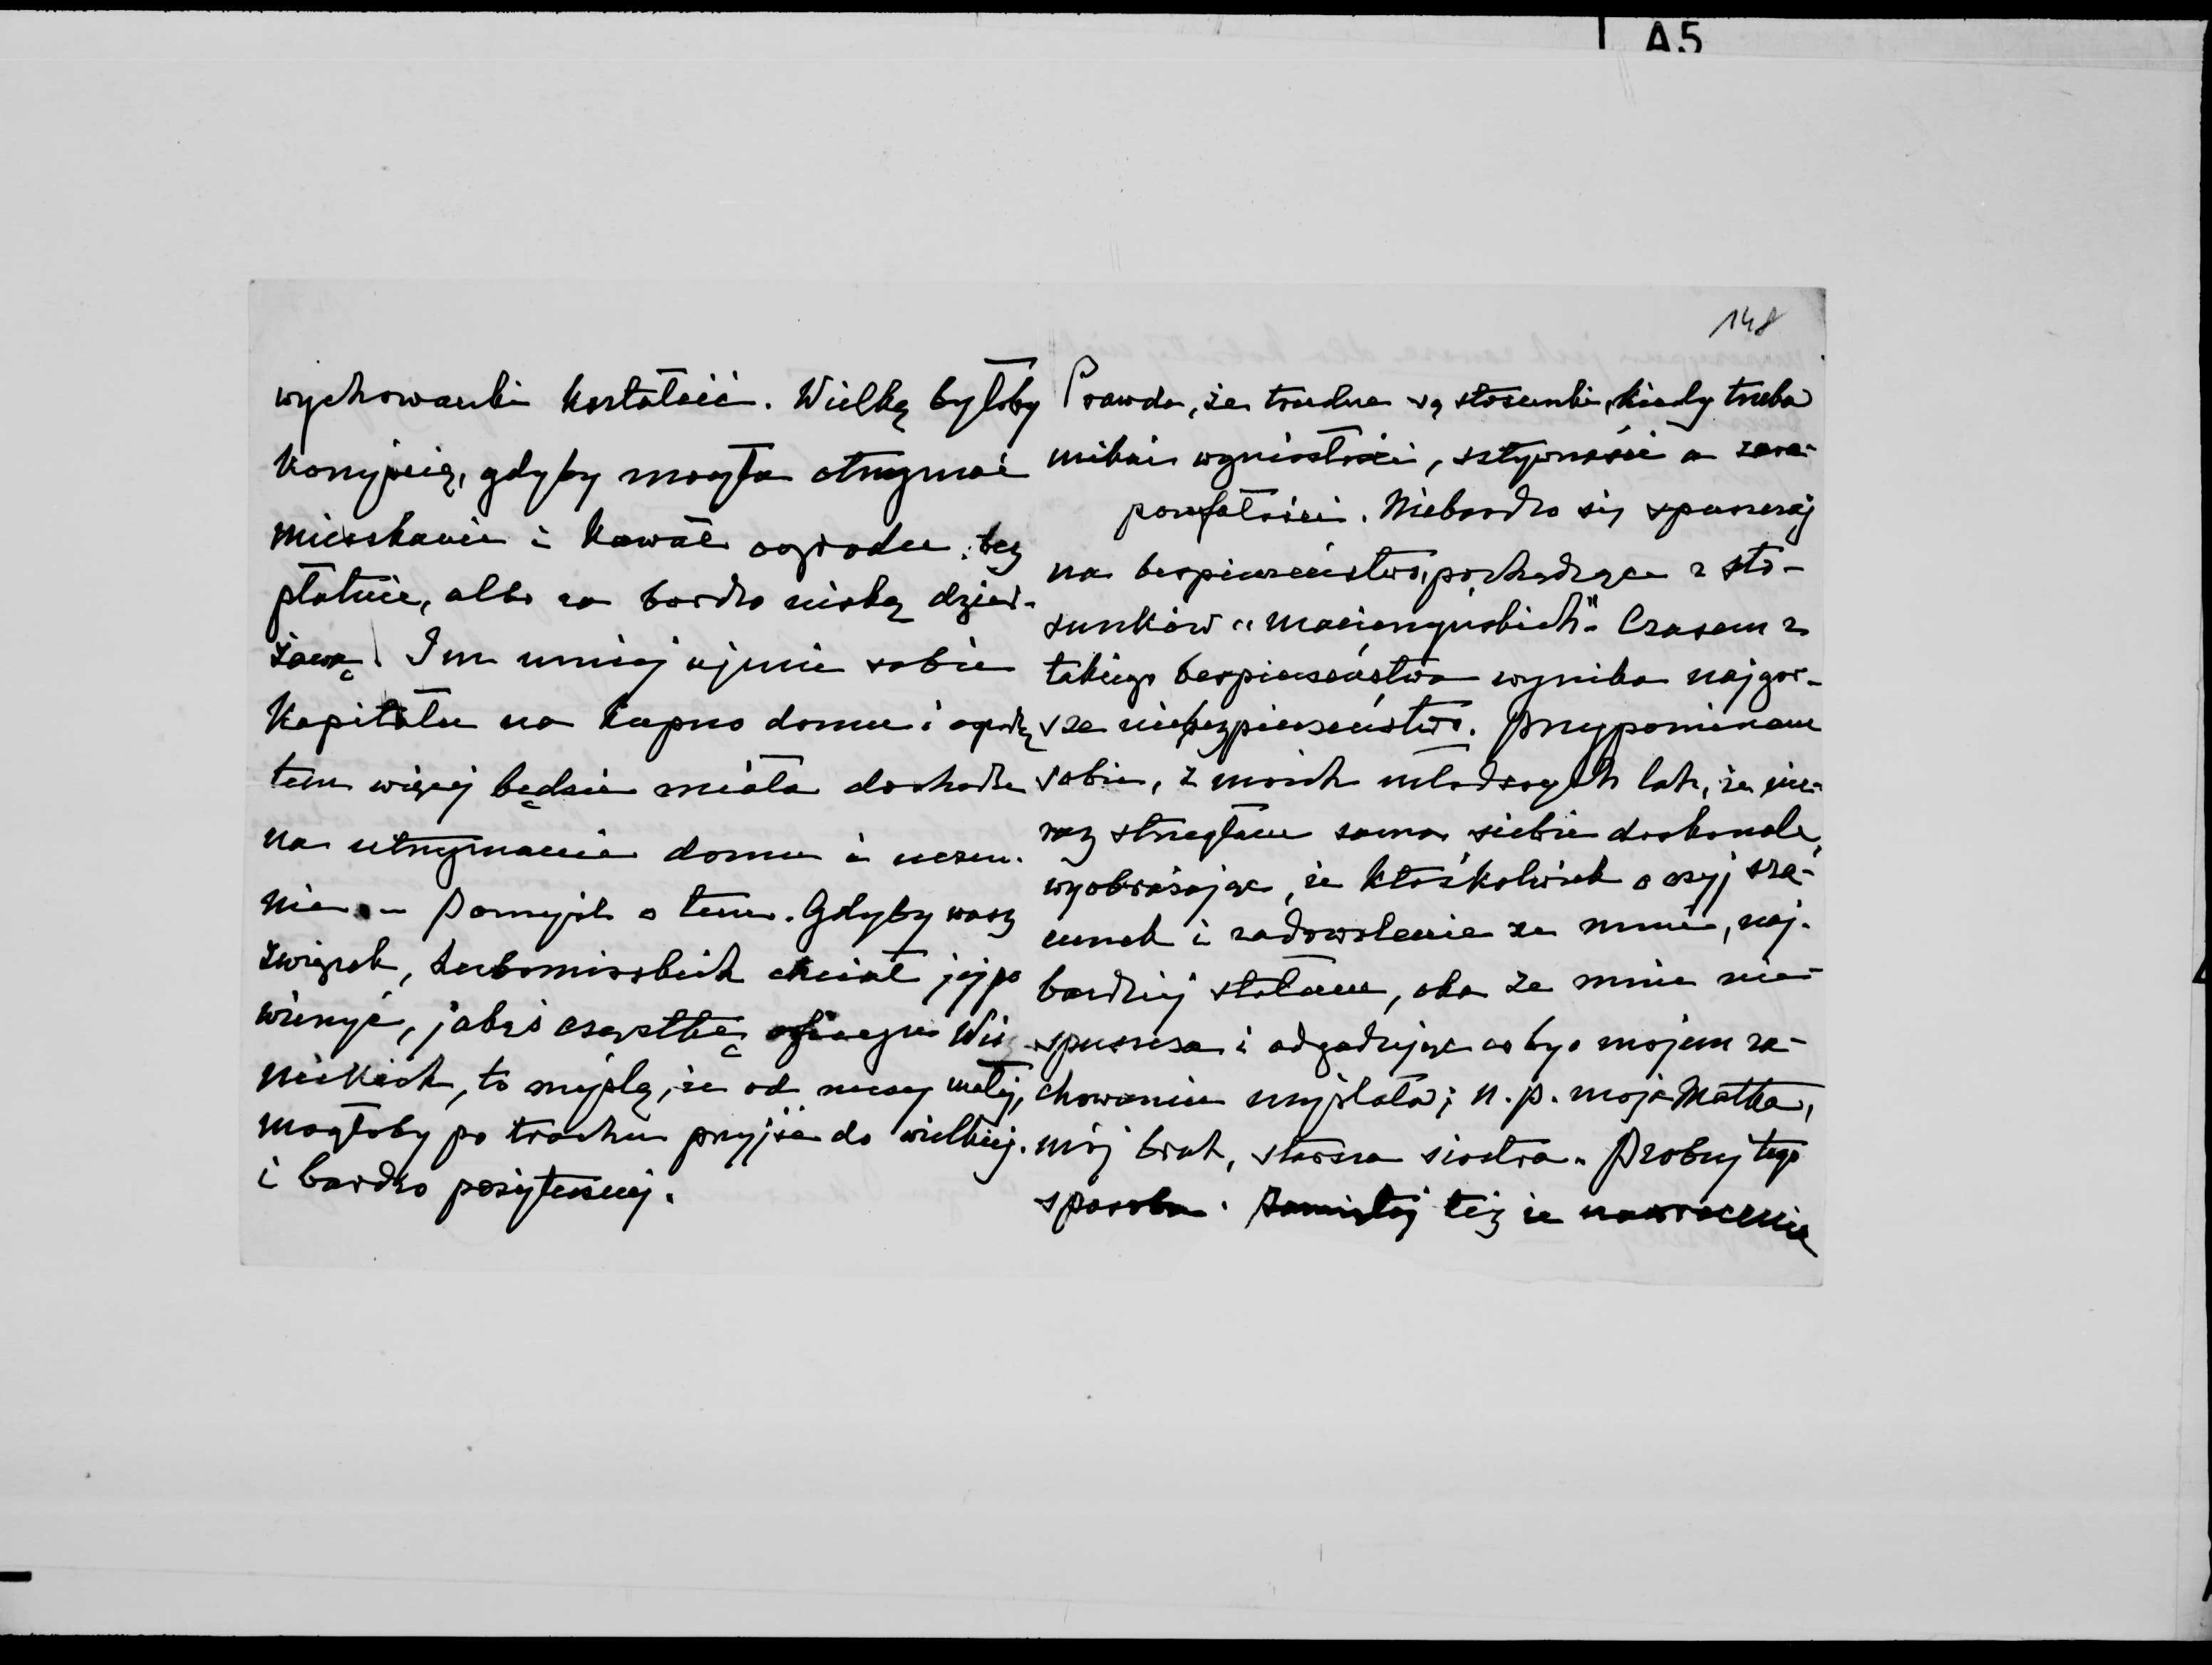 A5
148
wychowanki kształcić. Wielką byłoby
Korzyścią, gdyby mogła otrzymać
mieszkanie i kawał ogrodu bez
płatnie, albo za bardzo niską dzier-
żawą. Im mniej ujmie sobie
Kapitału na kupno domu i ogrodu
tem więcej będzie miała dochodu
na utrzymanie domu i uczen-
nic - Pomyśl o tem. Gdyby wasz
związek, Lubomirskich chciał jej po
wierzyć, jakąś cząstkę
nickich, to myślę, że od rzeczy małej,
mogłoby po trochu przyjść do wielkiej.
i bardzo pożytecznej.
Prawda, że trudne są stosunki, kiedy trzeba
unikać wyniosłości, sztywności a zara-
poufałości. Niebardzo się spuszczaj
na bezpieczeństwo, pochodzące z sto-
sunków "macierzyńskich". Czasem z
takiego bezpieczeństwa wynika najgor-
sze niebezpieczeństwo. Przypominam
sobie, z moich młodszych lat, że nie-
raz strzegłam sama siebie doskonale,
wyobrażając, że ktośkolwiek o czyj sza-
cunek i zadowolenie ze mnie, naj-
bardziej stałam, oka ze mnie nie-
spuszcza i odgadując coby o mojem za-
chowaniu myślała; n.p. moja Matka,
mój brat, starsza siostra. Probuj tego
sposobu. Pamiętaj też że nawrócenie